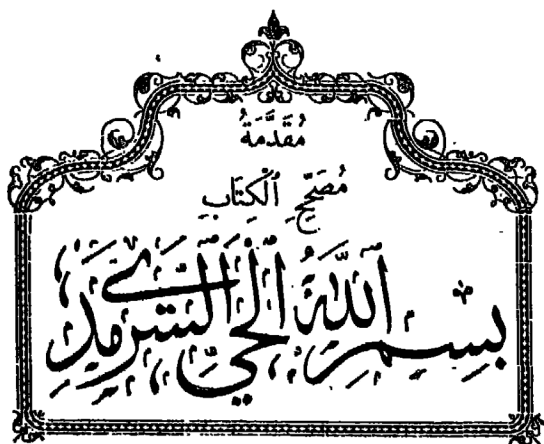 مُقَدَّمَةُ
مُصَحِّحِ الْكِتَابِ
بِسْمِ اللَّهِ الْحَيِّ السَّرْمَدِي